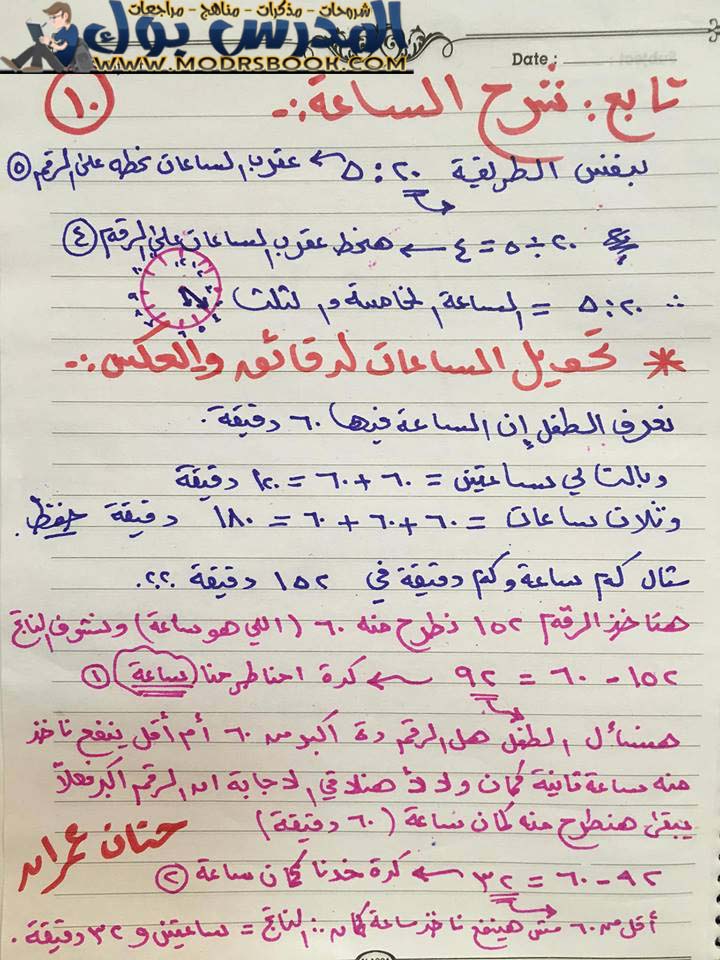 شروحات - مذكرات - مناهج - مراجعات
المدرس بوك
WWW.MODRSBOOK.COM
Date :
١٠
تابع : شرح الساعة :-
بنفس الطريقة ٥:٢٠ ← عقرب الساعات نحطه على الرقم ٥
٢٠ ÷ ٥ = ٤ ← هنحط عقرب الساعات على الرقم ٤
∴ ٥:٢٠ = الساعة الخامسة و الثلث
* تحويل الساعات لدقائق والعكس :-
نعرف الطفل إن الساعة فيها ٦٠ دقيقة .
وبالتالي ساعتين = ٦٠ + ٦٠ = ١٢٠ دقيقة
وثلاث ساعات = ٦٠ + ٦٠ + ٦٠ = ١٨٠ دقيقة حفظ .
مثال كم ساعة وكم دقيقة في ١٥٢ دقيقة ؟؟
هناخد الرقم ١٥٢ نطرح منه ٦٠ (اللي هو ساعة) ونشوف الناتج
١٥٢ - ٦٠ = ٩٢ ← كدة احنا طرحنا ساعة ١
هنسأل الطفل هل الرقم دة اكبر من ٦٠ أم أقل ينفع ناخد
منه ساعة تانية كمان ولا لأ هنلاقي الاجابة ان الرقم اكبر فعلاً
يبقى هنطرح منه كمان ساعة (٦٠ دقيقة)
٩٢ - ٦٠ = ٣٢ ← كدة خدنا كمان ساعة ٢
أقل من ٦٠ مش هينفع ناخد ساعة كمان ∴ الناتج = ساعتين و ٣٢ دقيقة .
حنان عمران